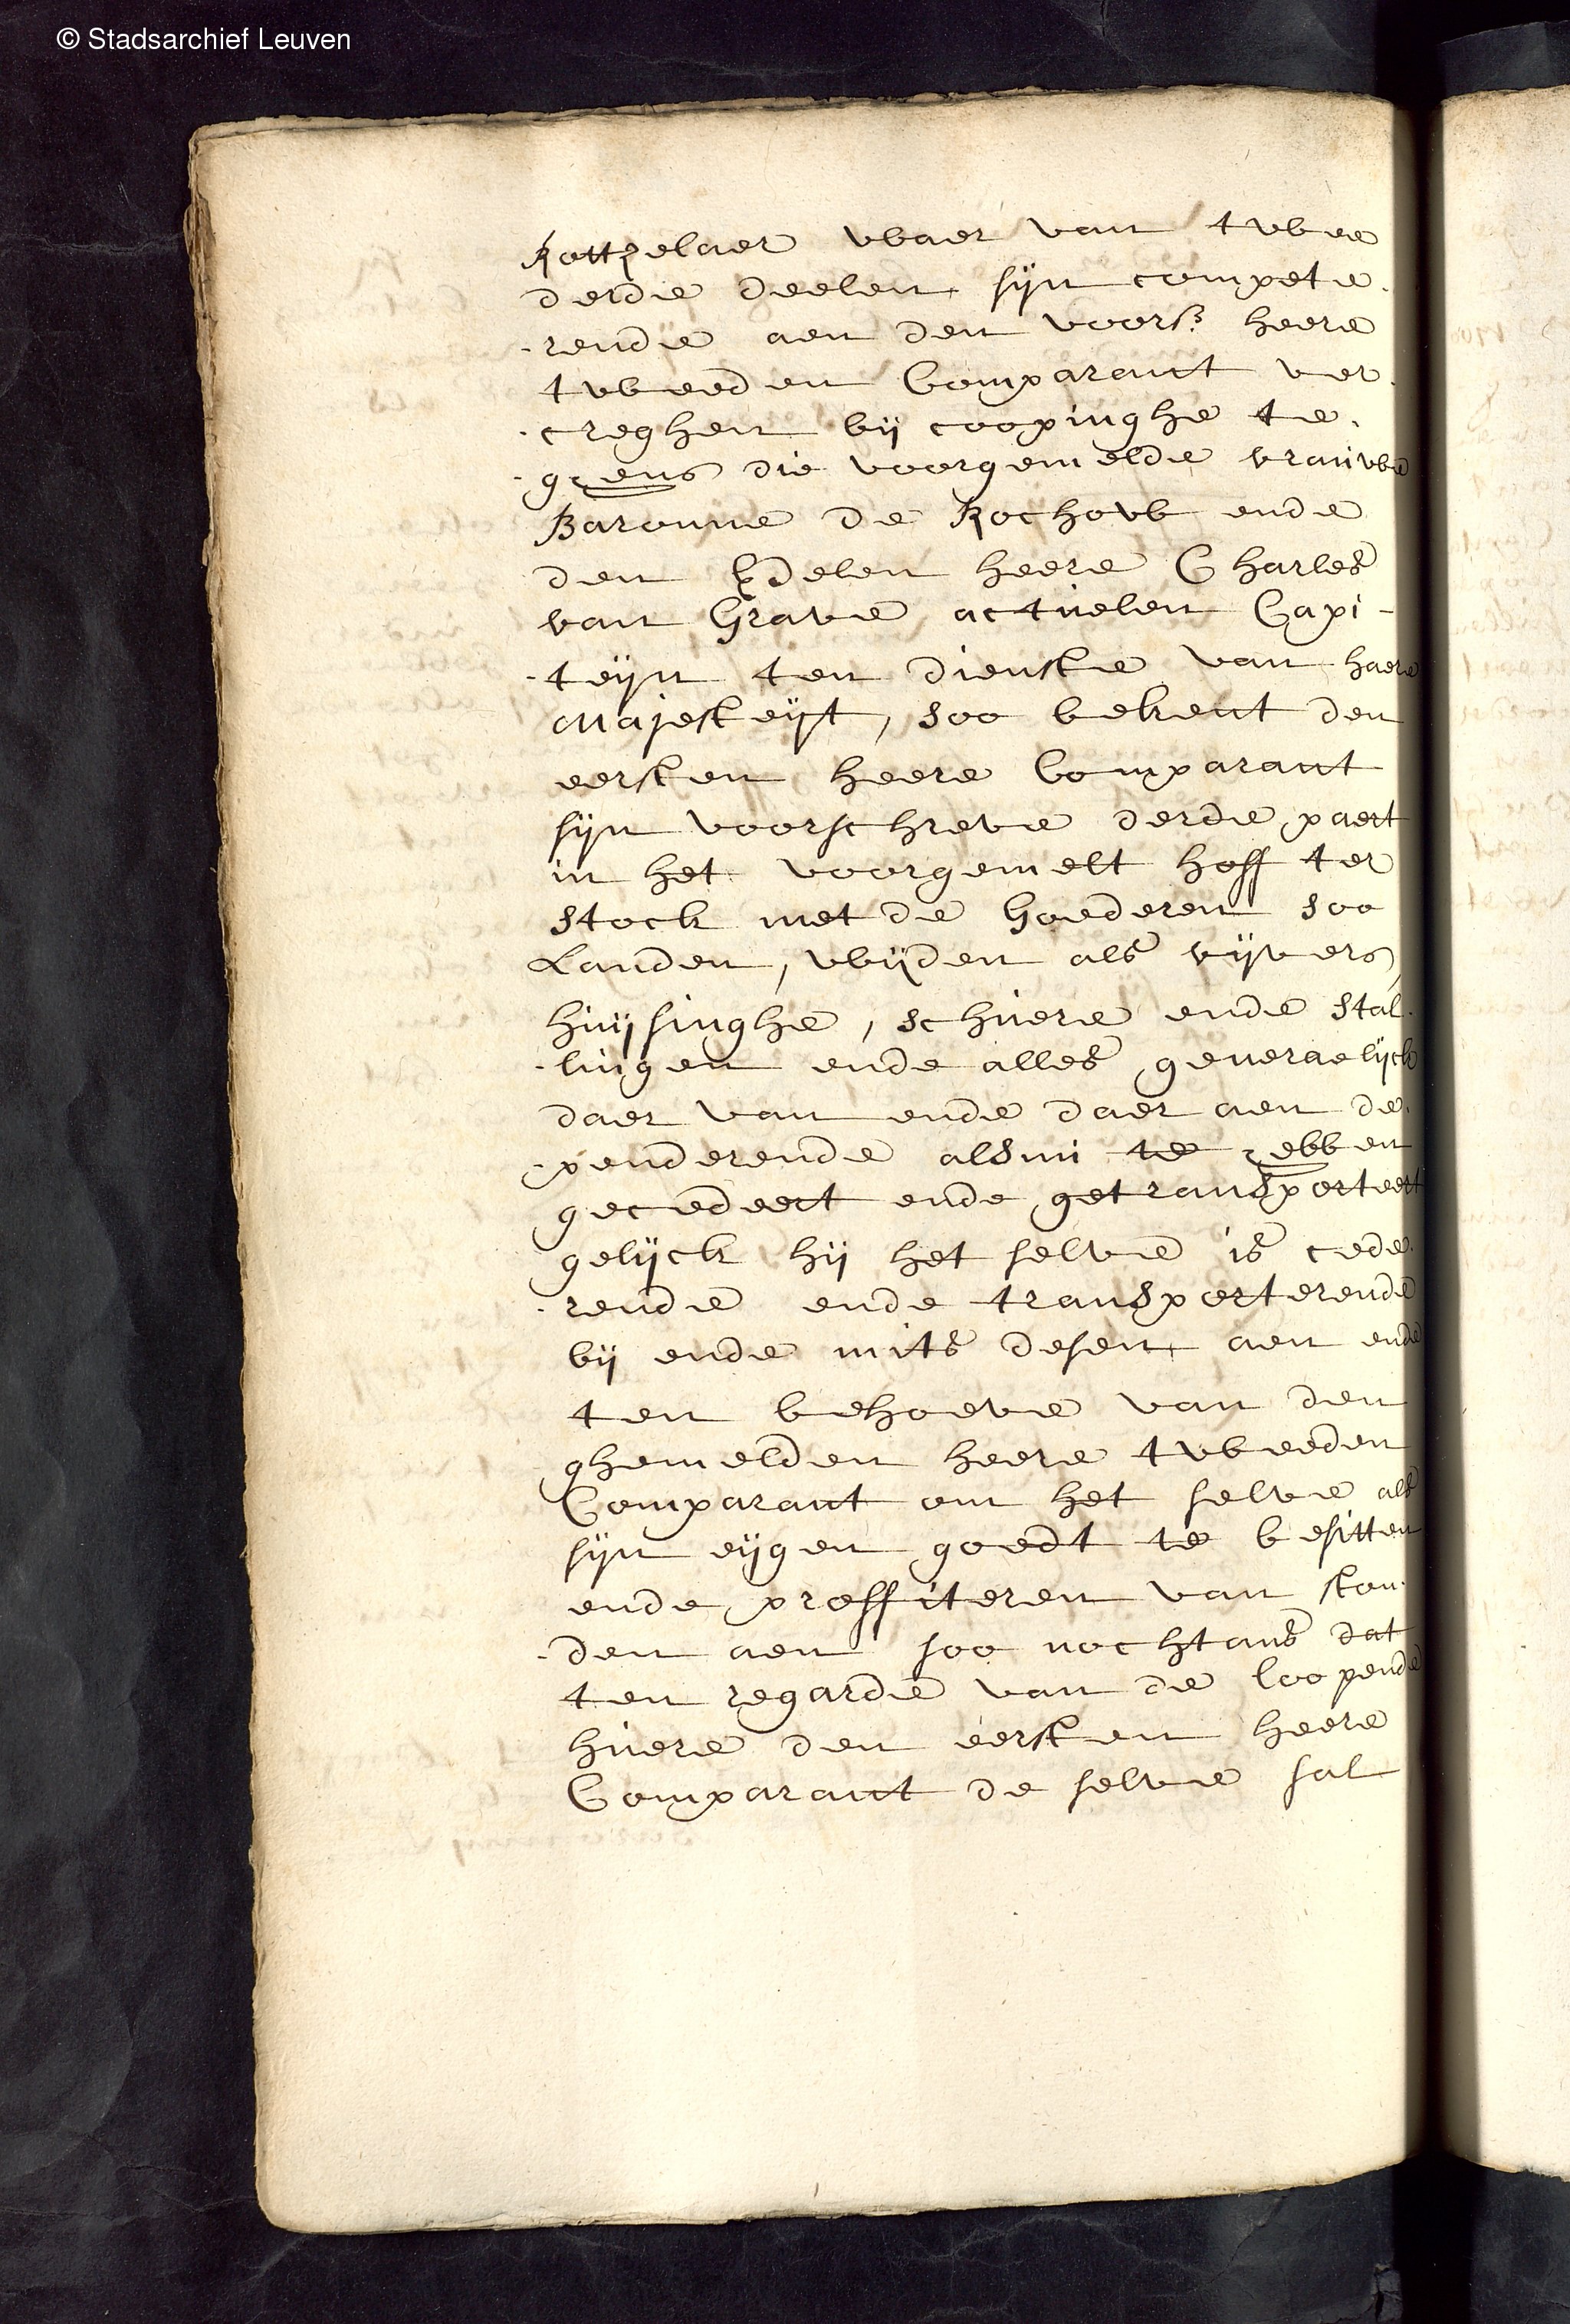 © Stadsarchief Leuven
Rottzelaer waer van twee
derde deelen sijn compete
rende aen den voors. heere
tweeden Comparant ver
creghen bij coopinghe te
gens die voorgemelde vrauwe
Baronne de Rochow ende
den Edelen heere Charles
van Grave actuelen Capi-
teijn ten dienste van haere
Majesteijt, soo bekent den
eersten heere Comparant
sijn voorschreve derde paert
in het voorgemelt hoff ter
stock met de Goederen soo
Landen, wijden als vijvers,
huijsinghe, schuere ende stal
lingen ende alles generaelijck
daer van ende daer aen de
penderende alsnu te hebben
gecedeert ende getransporteert
gelijck hij het selve is cede
rende ende transporterende
bij ende mits desen aen ende
ten behoeve van den
ghemelden heere tweeden
Comparant om het selve als
sijn eijgen goedt te besitten
ende proffiteren van ston
den aen soo nochtans dat
ten regarde van de loopende
huere den eersten heere
Comparant de selve sal